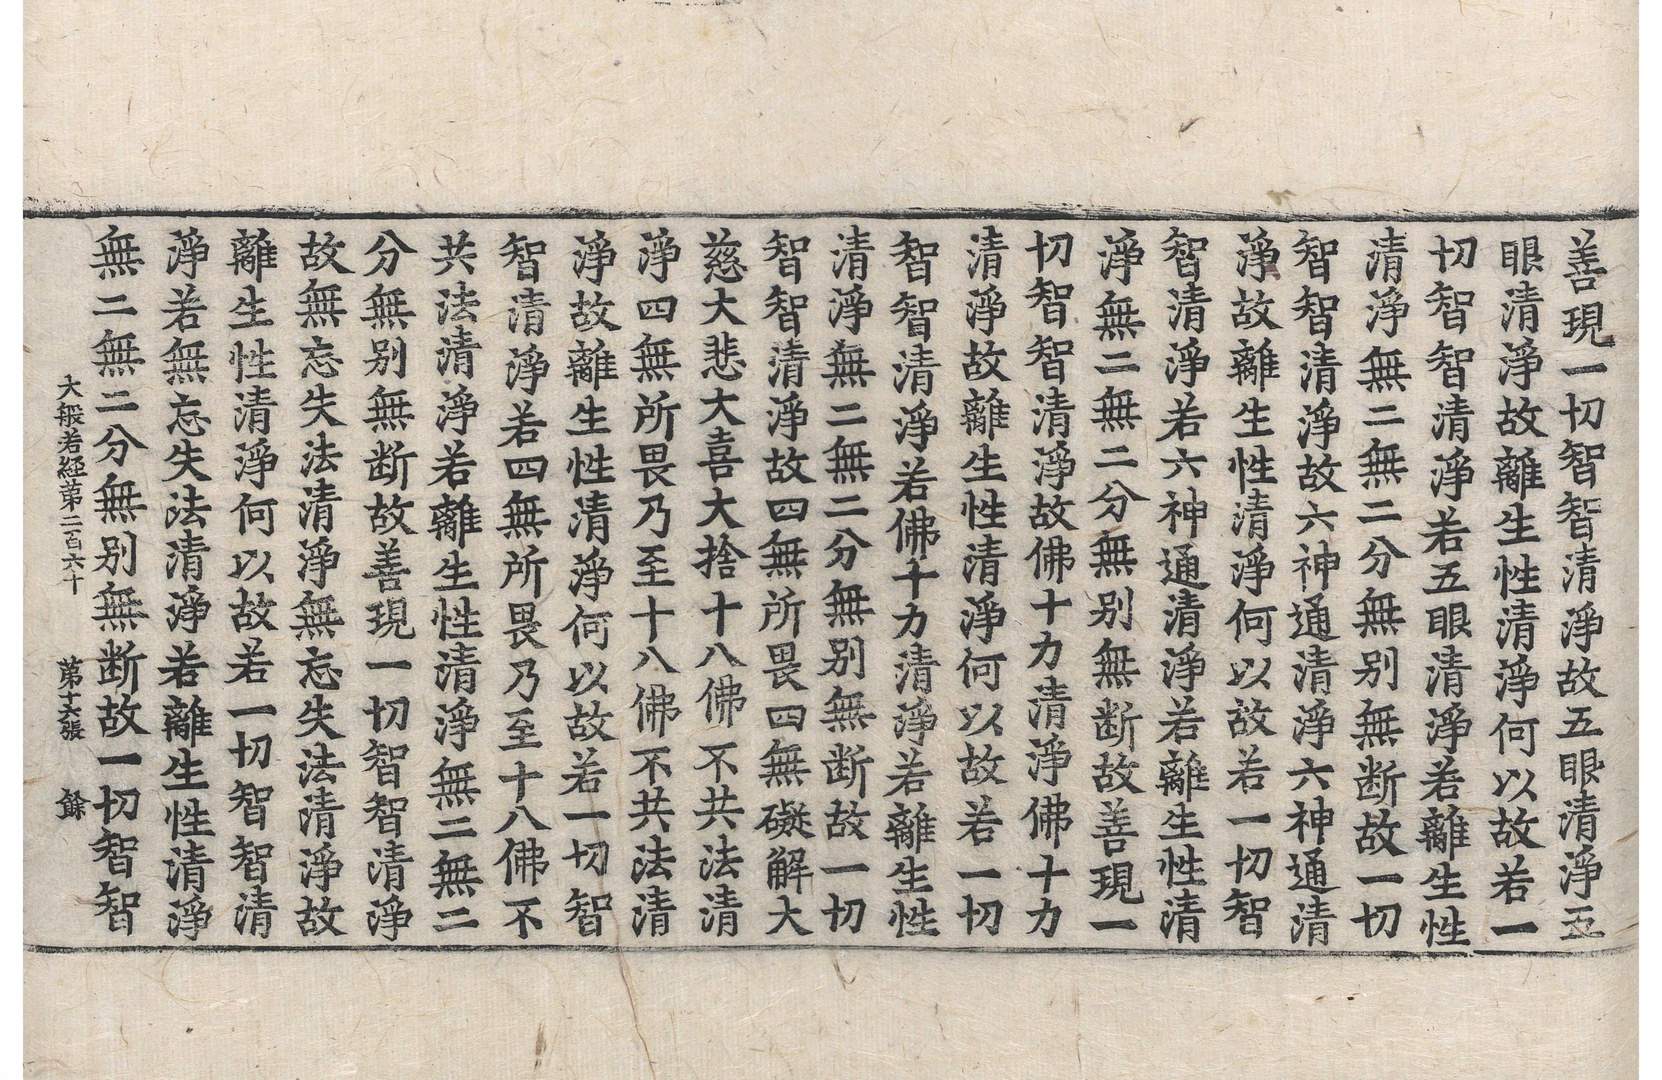 善現一切智智清淨故五眼清淨五
眼清淨故離生性清淨何以故若一
切智智清淨若五眼清淨若離生性
清淨無二無二分無別無断故一切
智智清淨故六神通清淨六神通清
淨故離生性清淨何以故若一切智
智清淨若六神通清淨若離生性清
淨無二無二分無別無断故善現一
切智智清淨故佛十力清淨佛十力
清淨故離生性清淨何以故若一切
智智清淨若佛十力清淨若離生性
清淨無二無二分無別無断故一切
智智清淨故四無所畏四無礙解大
慈大悲大喜大捨十八佛不共法清
淨四無所畏乃至十八佛不共法清
淨故離生性清淨何以故若一切智
智清淨若四無所畏乃至十八佛不
共法清淨若離生性清淨無二無二
分無別無断故善現一切智智清淨
故無忘失法清淨無忘失法清淨故
離生性清淨何以故若一切智智清
淨若無忘失法清淨若離生性清淨
無二無二分無別無断故一切智智
大般若經第二百六十 第十六張 餘